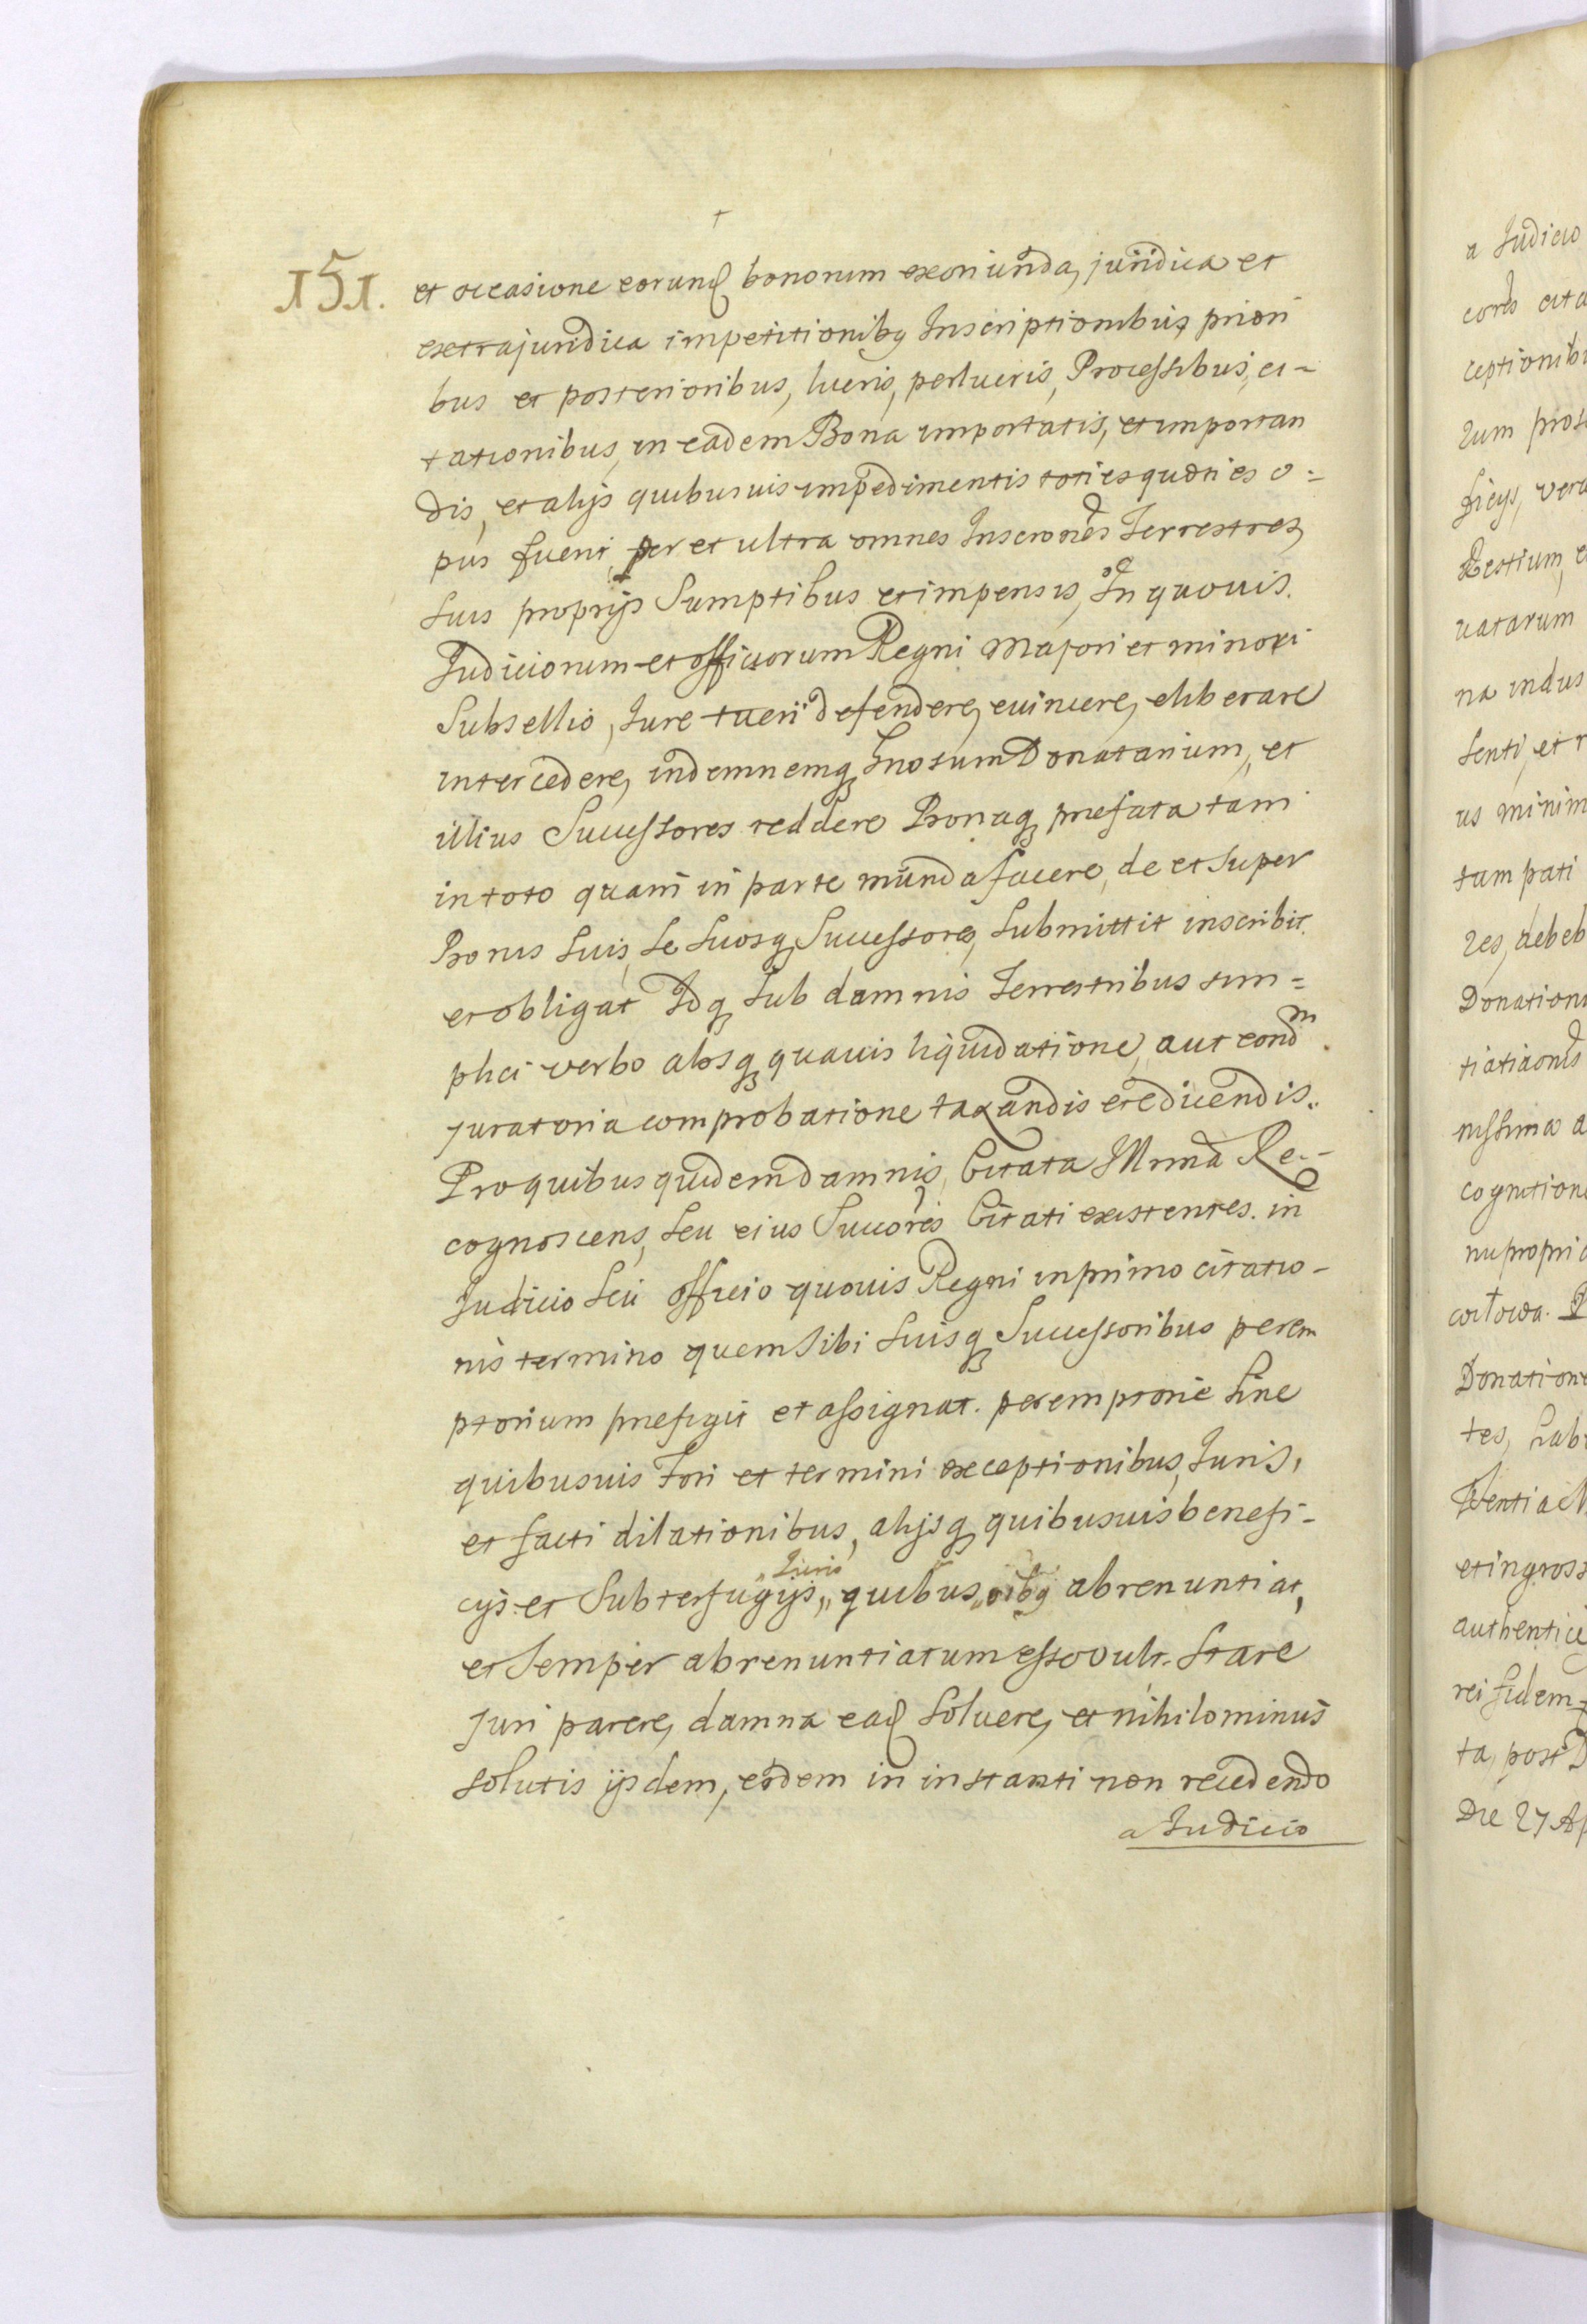 †
151.
et occasione eorund bonorum exoriunda, juridica et
extrajuridica impetitionibq Inscriptionibus priori
bus et posterioribus, lucris, perlucris, Processibus, ci-
tationibus, in eadem Bona importatis, et importan
dis, et alijs quibusuis impedimentis toties quoties o-
pus fuerit, per et ultra omnes Inscrones Terrestres,
suis proprijs Sumptibus et impensis, In quouis.
Judiciorum et officiorum Regni Majori et minori
Subsellio, Jure tueri defendere, euincere, eliberare
intercedere, indemnemq Donatarium, et
illius Successores reddere Bonaq prefata tam
in toto quam in parte munda facere, de et super
Bonis suis, se suosq Successores, submittit inscribit.
et obligat Idq sub damnis Terrestribus sim=
plici verbo absq quauis liquidatione, aut eondm
juratoria comprobatione taxandis et edicendis.
Pro quibus quidem damnis, Citata Re-
cognoscens, seu eius Succores Citati existentes. in
Judicio seu officio quouis Regni in primo citatio-
nis termino quem sibi suisq Successoribus perem
ptorium prefigit et assignat. peremptorie sine
quibusuis Fori et termini exceptionibus, Juris,
et facti dilationibus, alijsq quibusuis benefi-
Juris
cijs et Subterfugijs, quibus oibq abrenuntiat,
et semper abrenuntiatum esse vult. Stare
juri parere, damna ead soluere, et nihilominus
solutis ijsdem, eodem in instanti non recedendo
a Judicio
a Judicio
ceptionib
rum
uatarum
na indus
senti, et r
us minim
tum pati
res, debeb
Donation
nissima a
cognition
nu propri
Donation
tes, hab
et ingross
authentice
rei fidem
ta, post D
Die 27 Ap